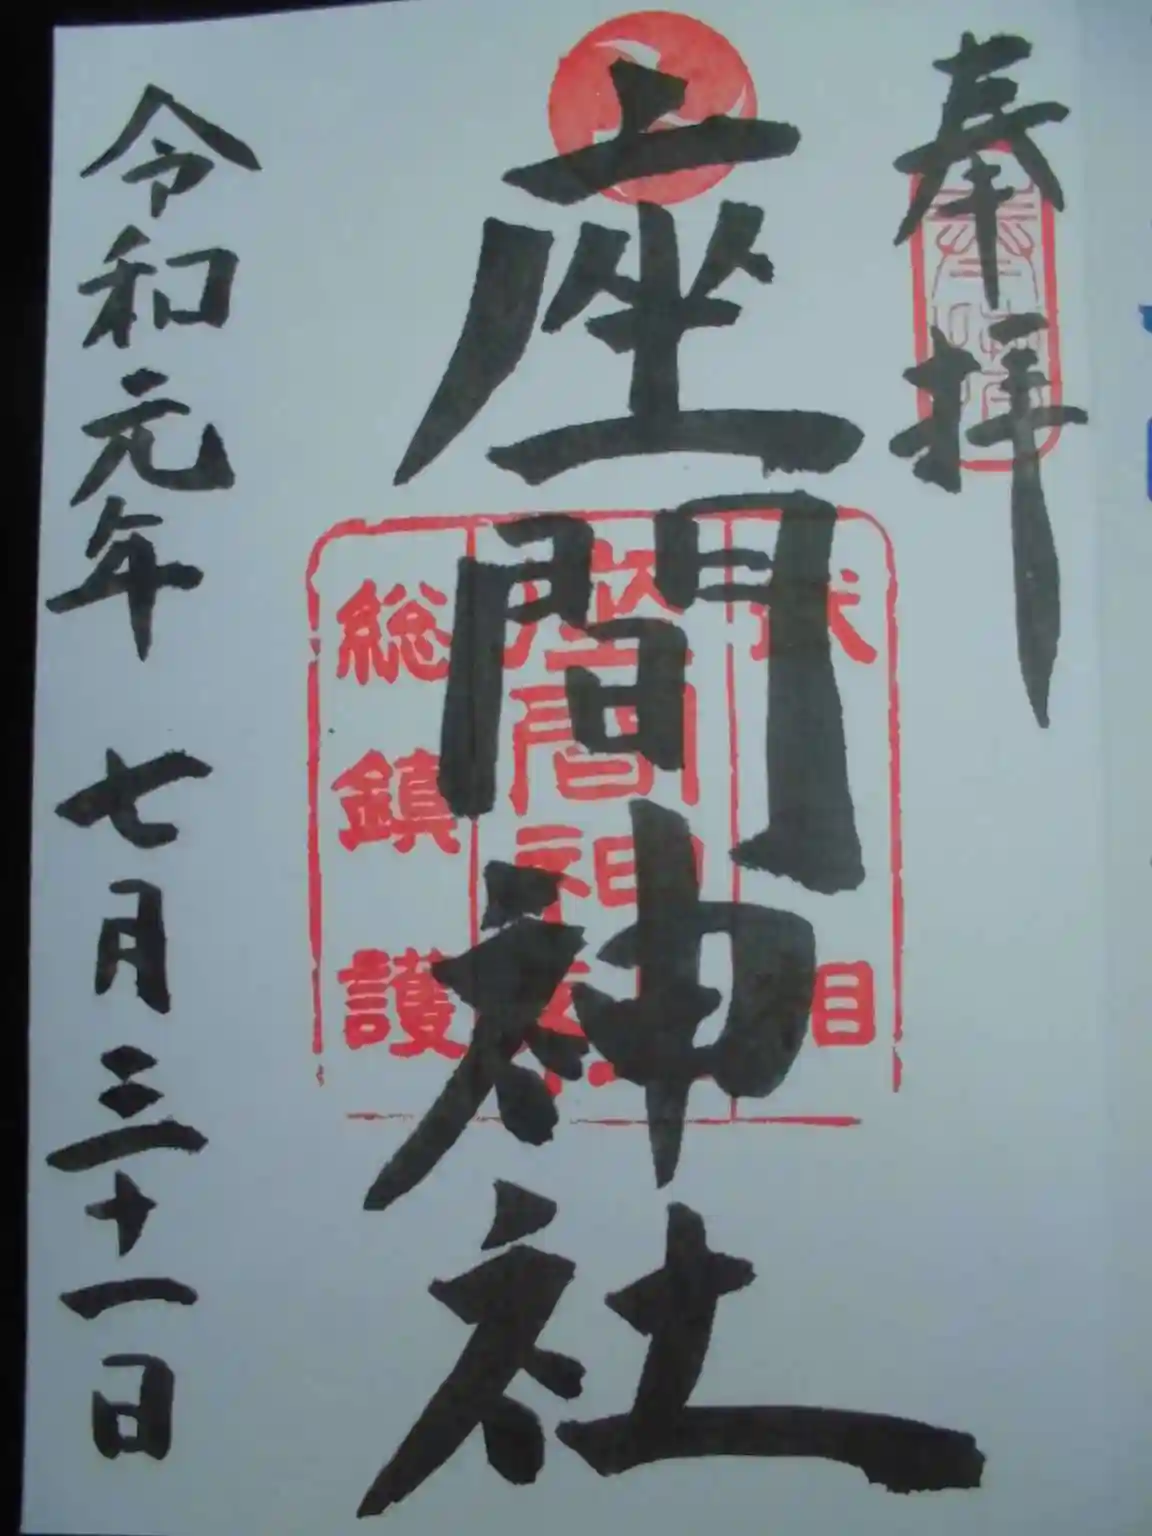 奉拝
座間神社
令和元年 七月三十一日
相武
座間神社
総鎮護